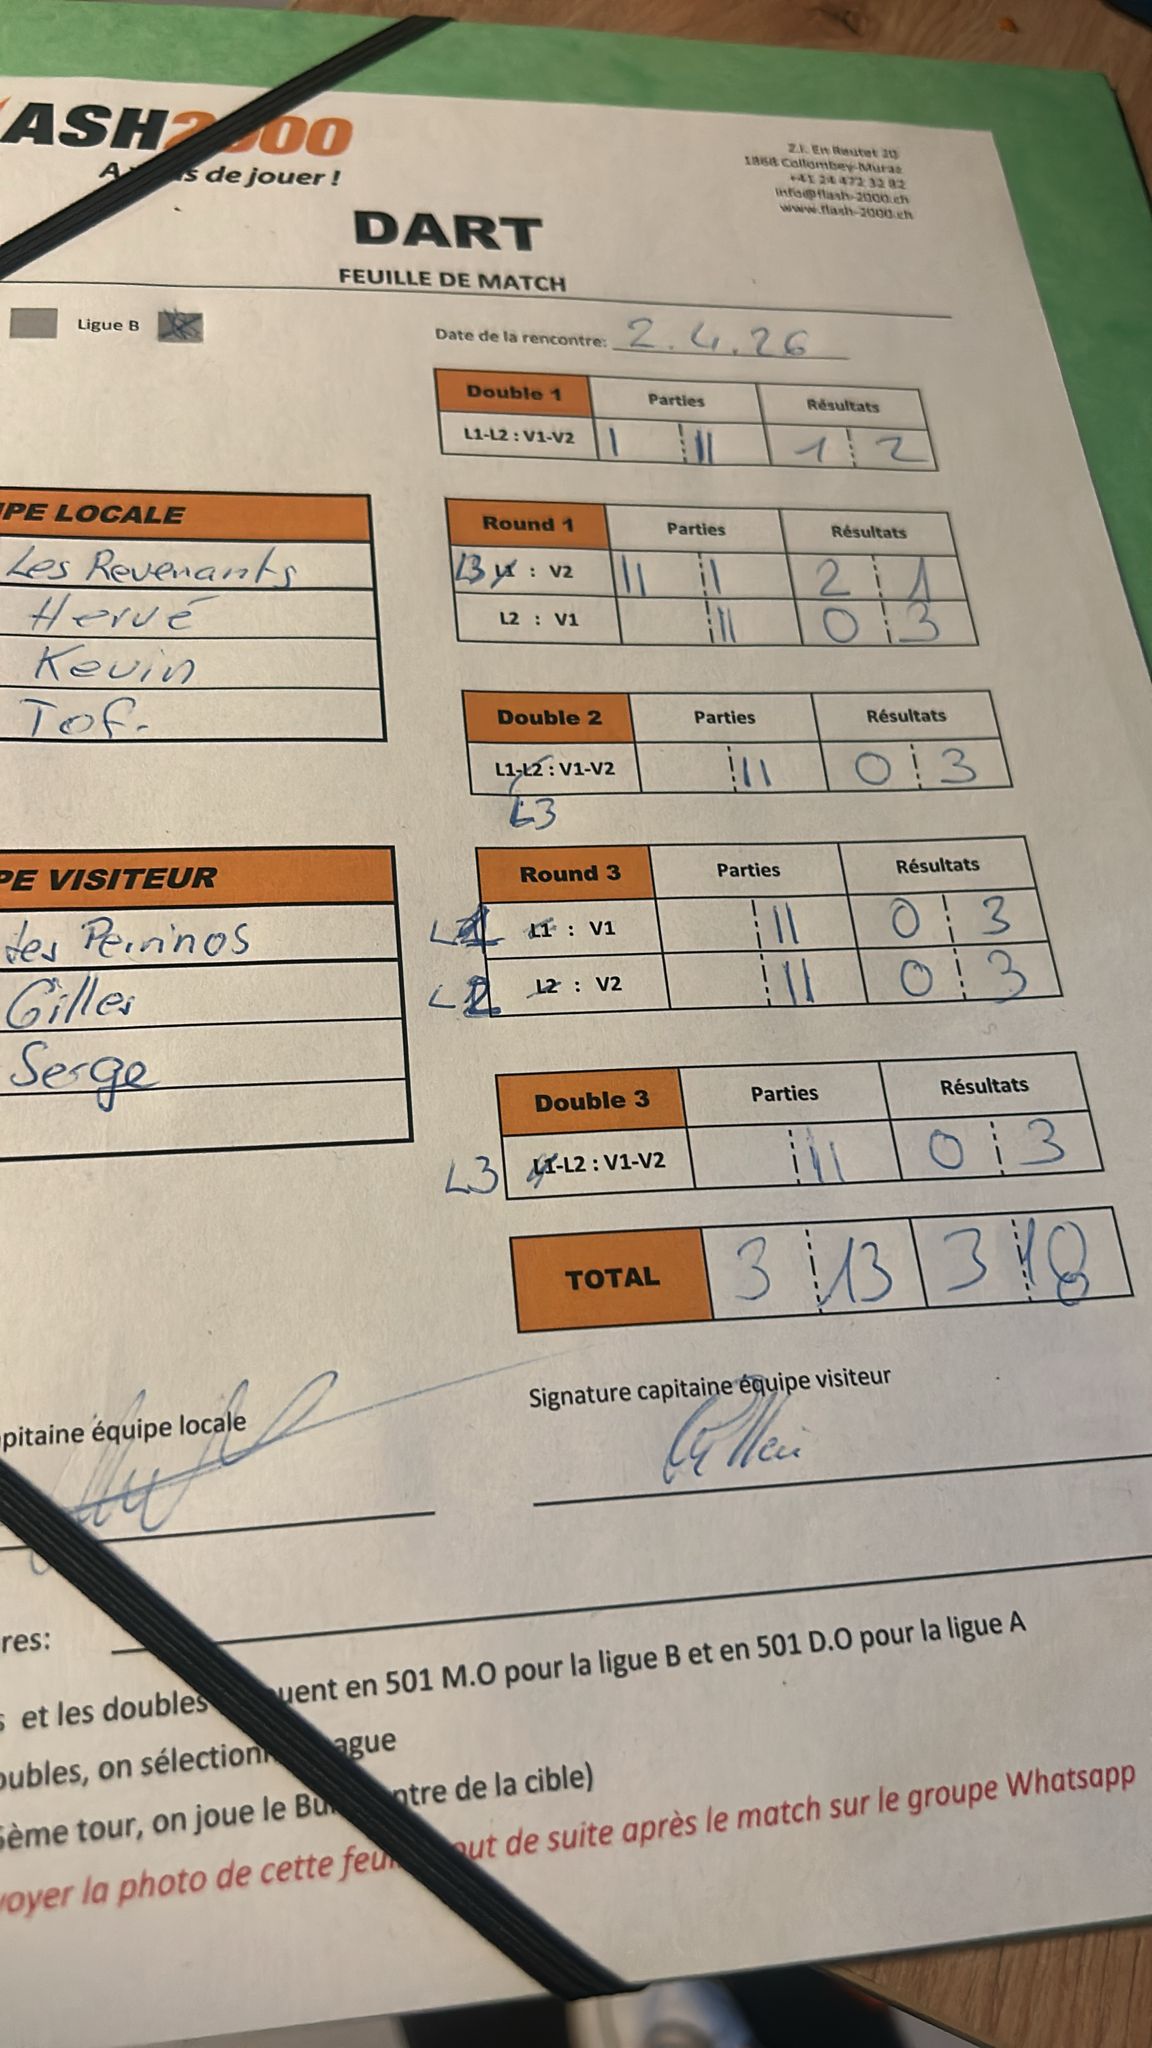 ASH2000
A de jouer !
Z.I. En Reutet 20
1868 Collombey-Muraz
+41 24 472 32 82
info@flash-2000.ch
www.flash-2000.ch
DART
FEUILLE DE MATCH
Ligue B
Date de la rencontre: 2.4.26
Double 1 Parties Résultats
L1-L2 : V1-V2 I II 1 2
PE LOCALE
Les Revenants
Hervé
Kevin
Tof.
Round 1 Parties Résultats
L3 L1 : V2 II I 2 1
L2 : V1 II 0 3
Double 2 Parties Résultats
L1-L2 : V1-V2 II 0 3
L3
PE VISITEUR
Les Perrinos
Gilles
Serge
Round 3 Parties Résultats
L1 : V1 II 0 3
L2 L2 : V2 II 0 3
Double 3 Parties Résultats
L3 L1-L2 : V1-V2 II 0 3
TOTAL 3 13 3 18
pitaine équipe locale
Signature capitaine équipe visiteur
res:
s et les doubles uent en 501 M.O pour la ligue B et en 501 D.O pour la ligue A
oubles, on sélectionn ague
ème tour, on joue le Bu ntre de la cible)
voyer la photo de cette feui out de suite après le match sur le groupe Whatsapp